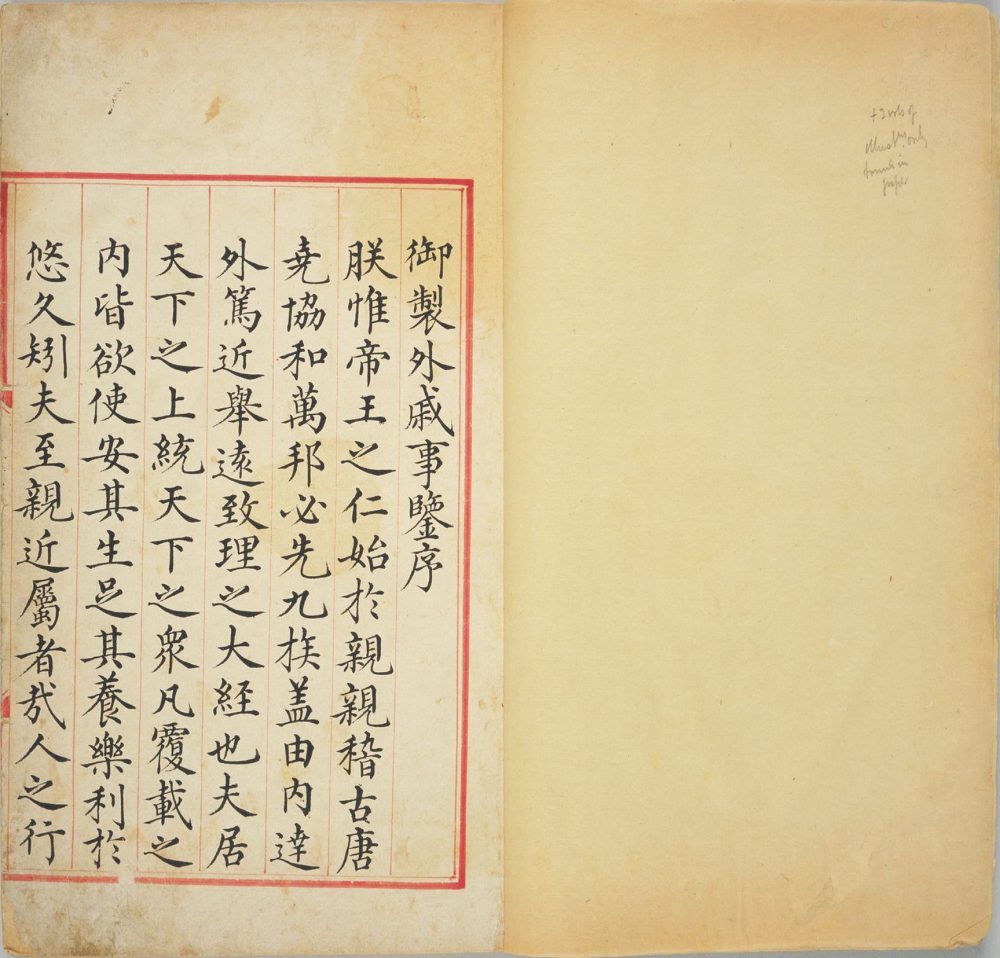 御製外戚事鑒序
朕惟帝王之仁始於親親稽古唐
堯協和萬邦必先九族盖由内達
外篤近舉逺致理之大經也夫居
天下之上統天下之衆凡覆載之
内皆欲使安其生足其養樂利於
悠久矧夫至親近屬者㦲人之行
+ 2 vols of
only
in